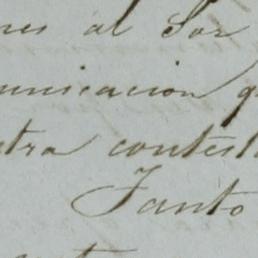 nes al Sor
unicacion q
tra contest
Tanto